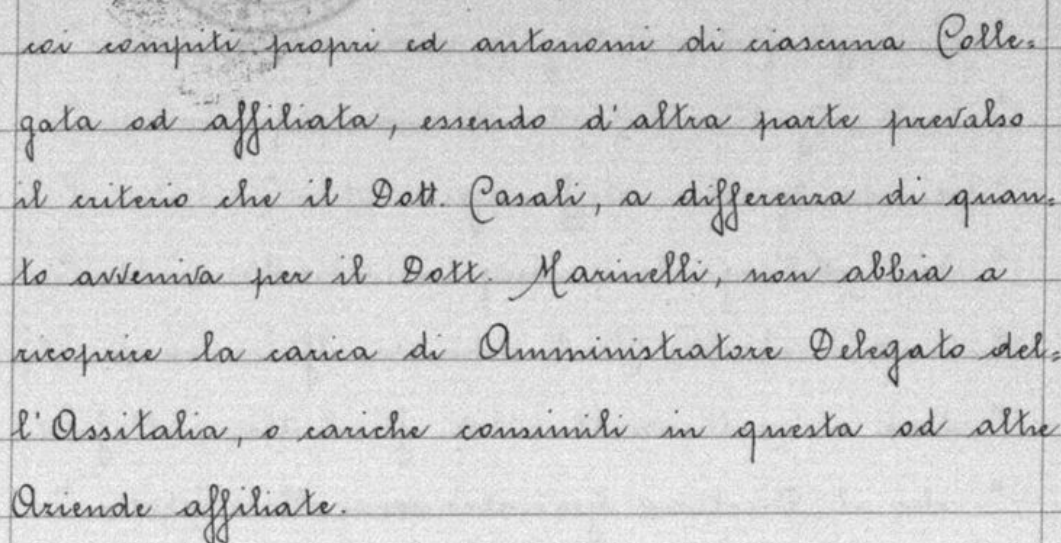 coi compiti propri ed autonomi di ciascuna Colle=
gata od affiliata, essendo d'altra parte prevalso
il criterio che il Dott. Casali, a differenza di quan=
to avveniva per il Dott. Marinelli, non abbia a
ricoprire la carica di Amministratore Delegato del=
l'Assitalia, o cariche consimili in questa od altre
Aziende affiliate.